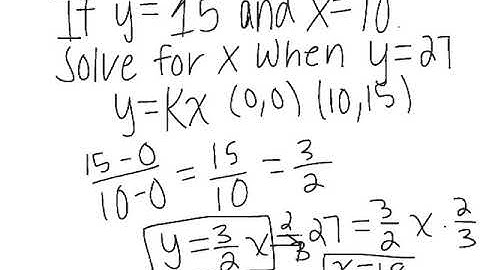 If y=15 and x=10.
Solve for x when y=27
y=Kx (0,0) (10,15)
15-0/10-0 = 15/10 = 3/2
y=3/2x → 2/3 · 27 = 3/2 x · 2/3
x=18